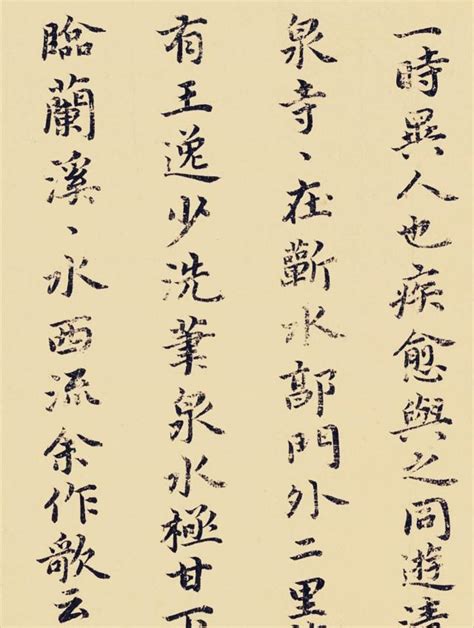 一時異人也疾愈與之同遊清
泉寺、在蘄水郭門外二里
有王逸少洗筆泉水極甘下
臨蘭溪、水西流余作歌云